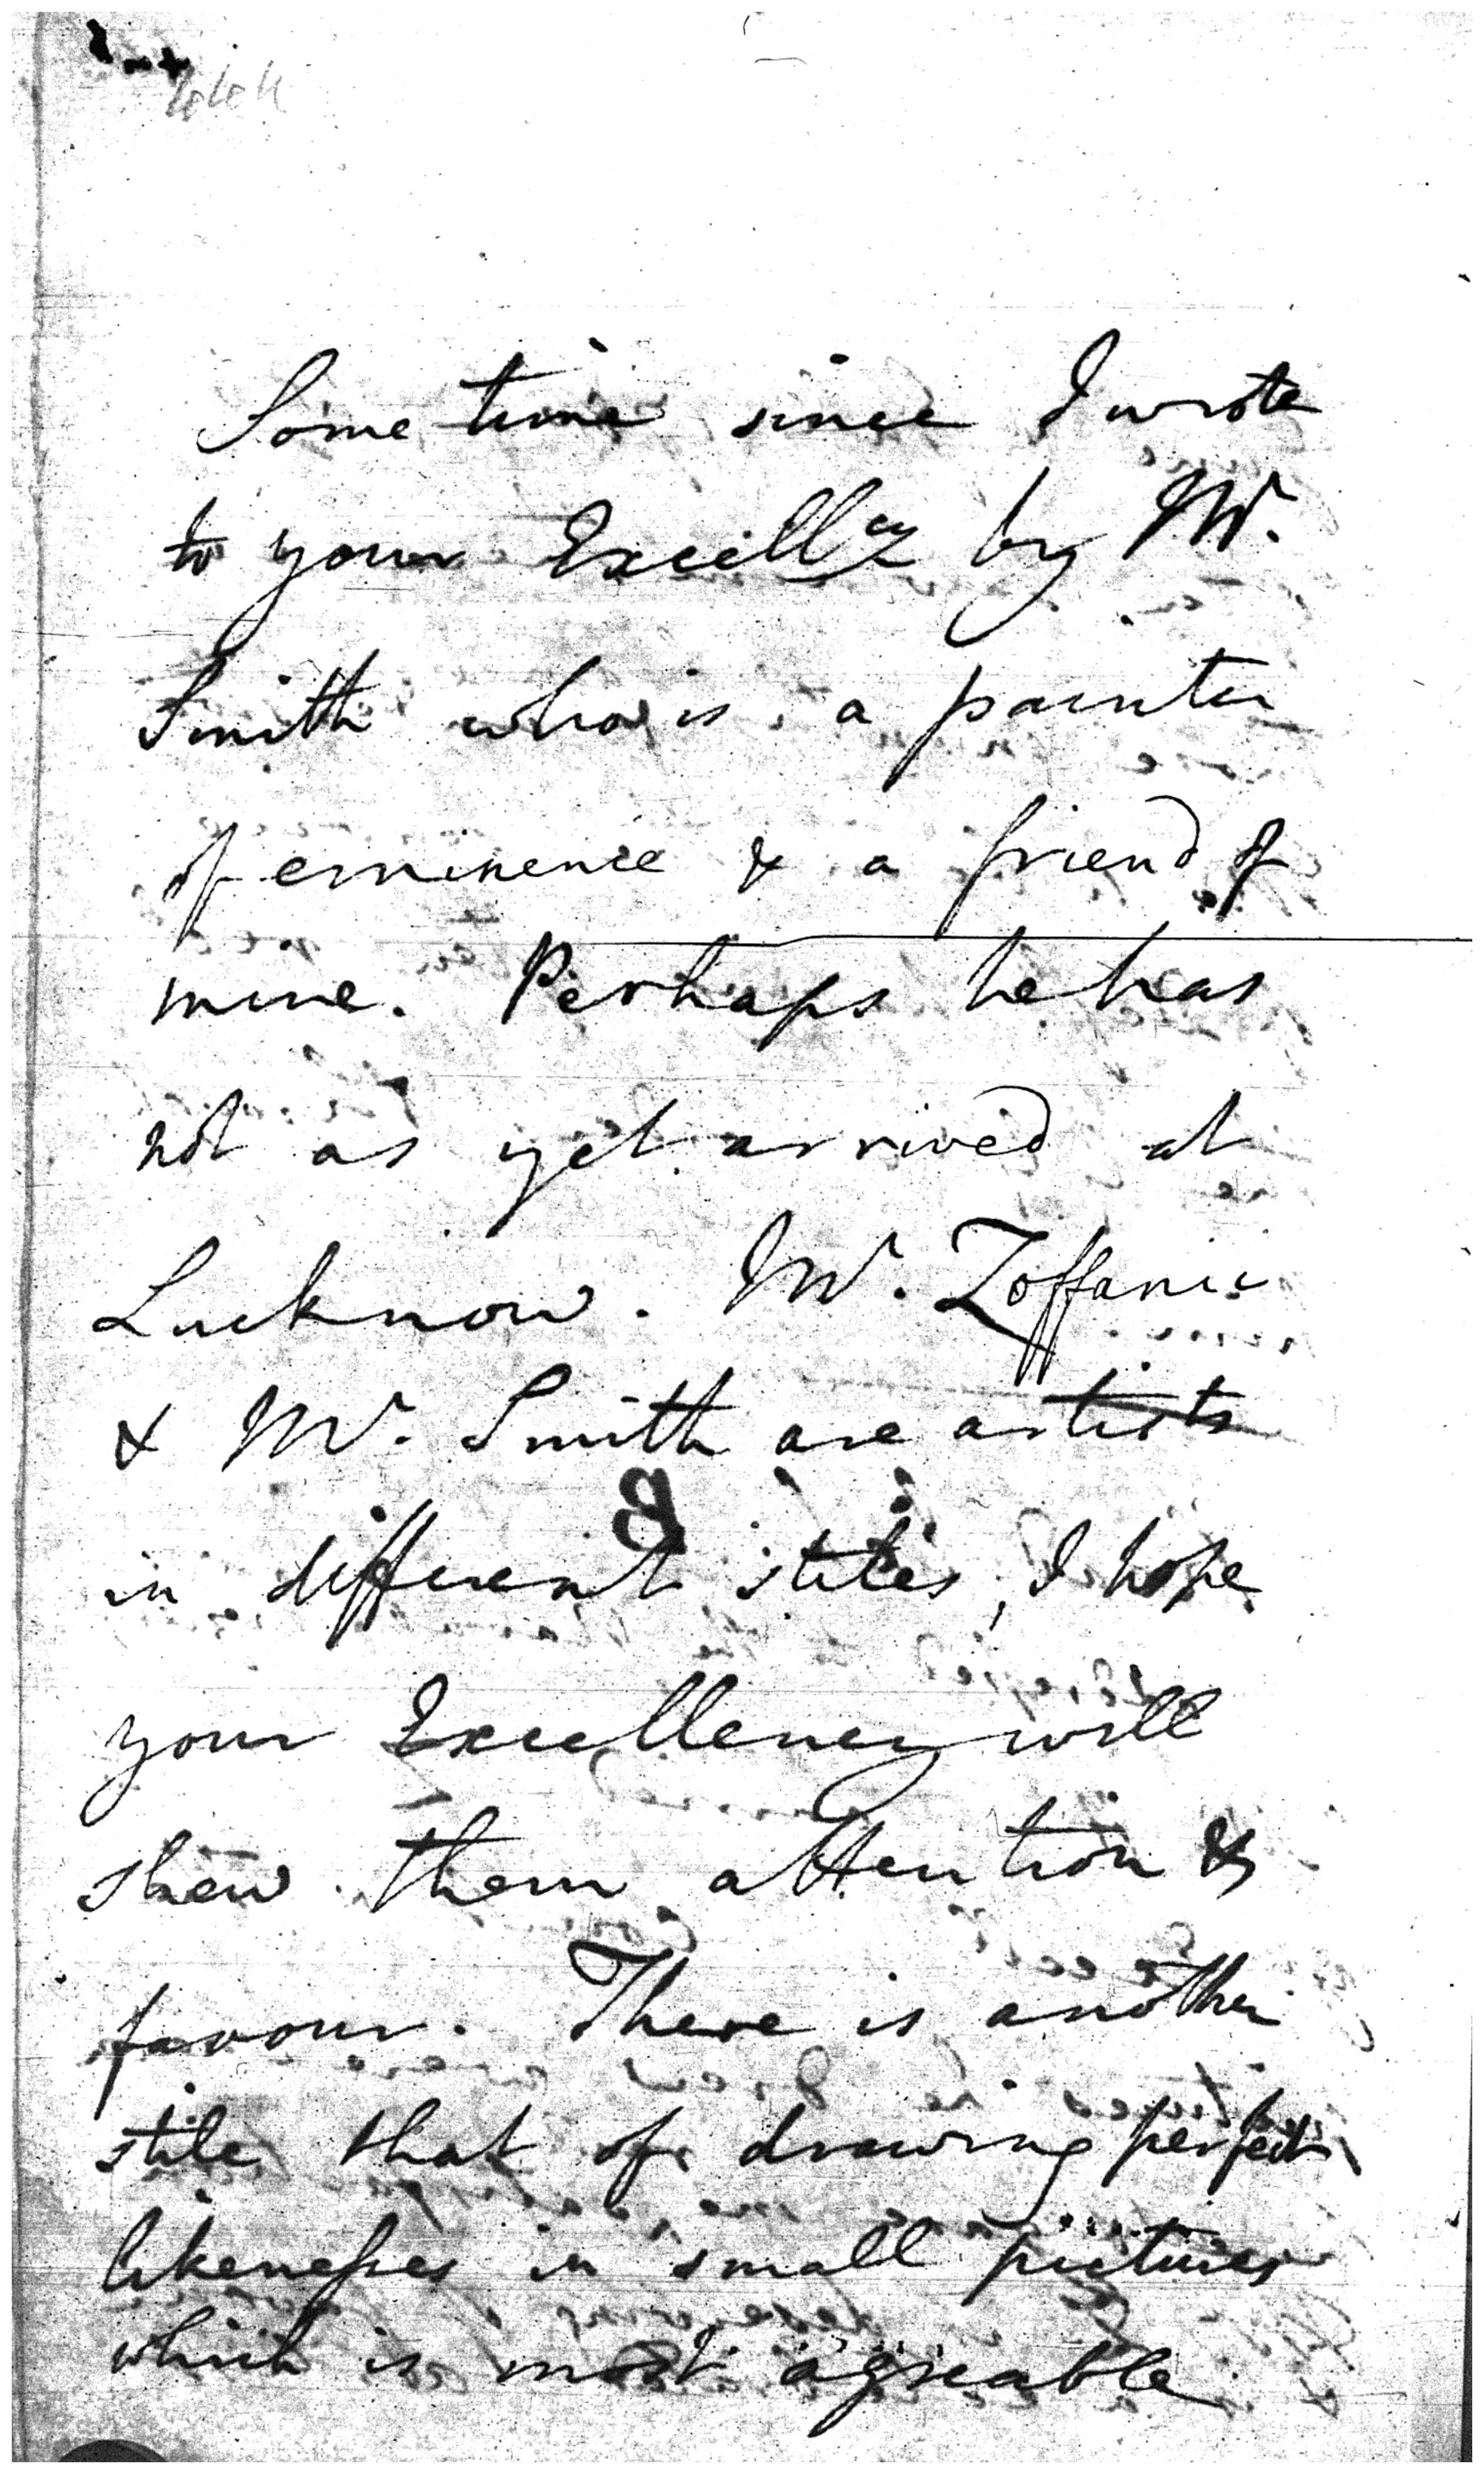 Some time since I wrote
to your Excell^cy by Mr.
Smith who is a painter
of eminence & a friend of
mine. Perhaps he has
not as yet arrived at
Lucknow. Mr. Zoffani
& Mr. Smith are artists
in different stiles, I hope
your Excellency will
shew them attention &
favour. There is another
stile that of drawing perfect
likenesses in small pictures
which is most agreable